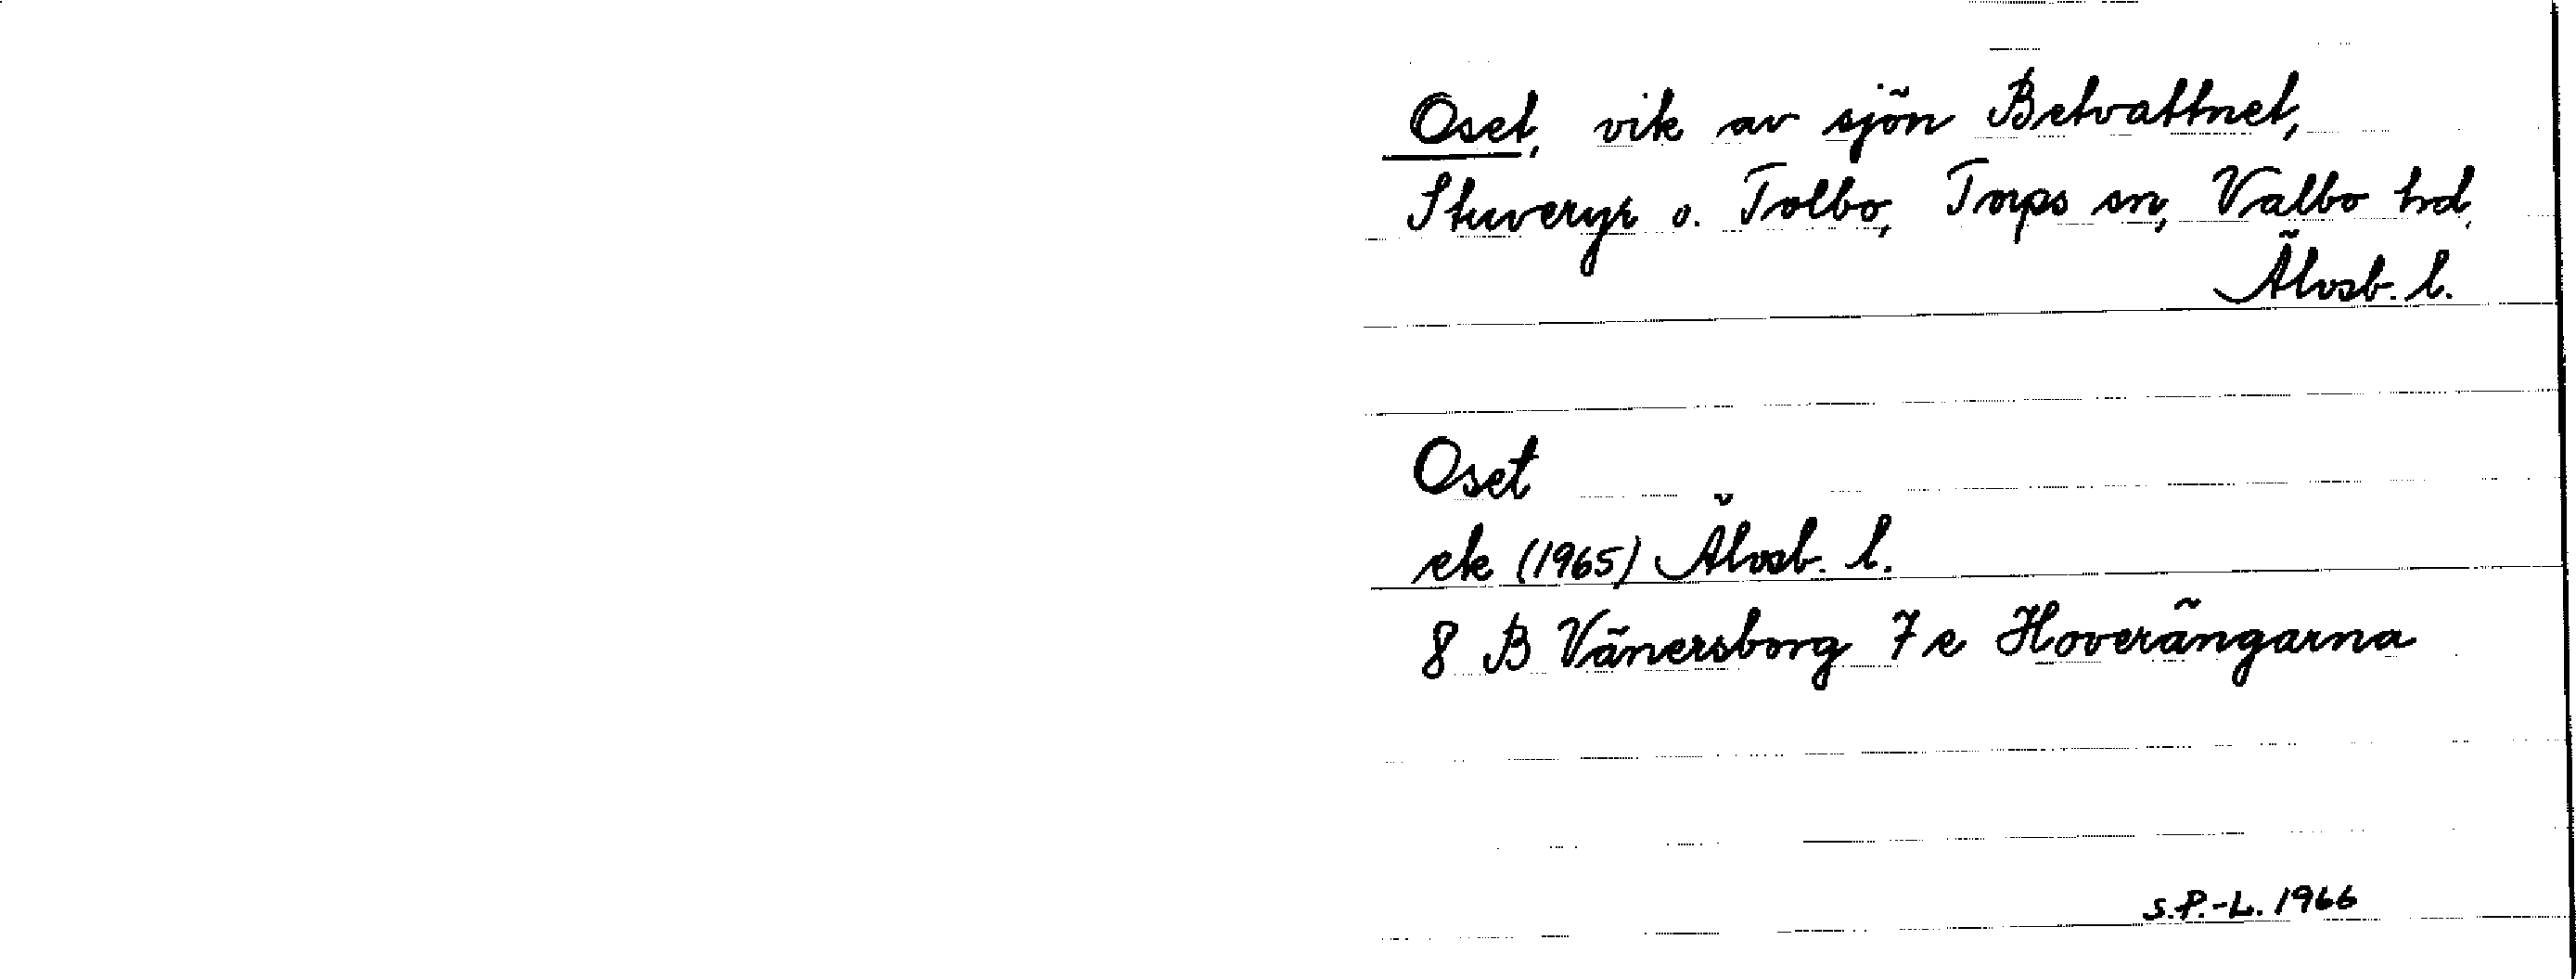 Oset, vik av sjön Betvattnet,
Stuveryr o. Tolbo, Torps sn, Valbo hd,
Älvsb. l.
Oset
ek (1965) Älvsb. l.
8 B Vänersborg 7 e Hoverängarna
S.P.-L. 1966